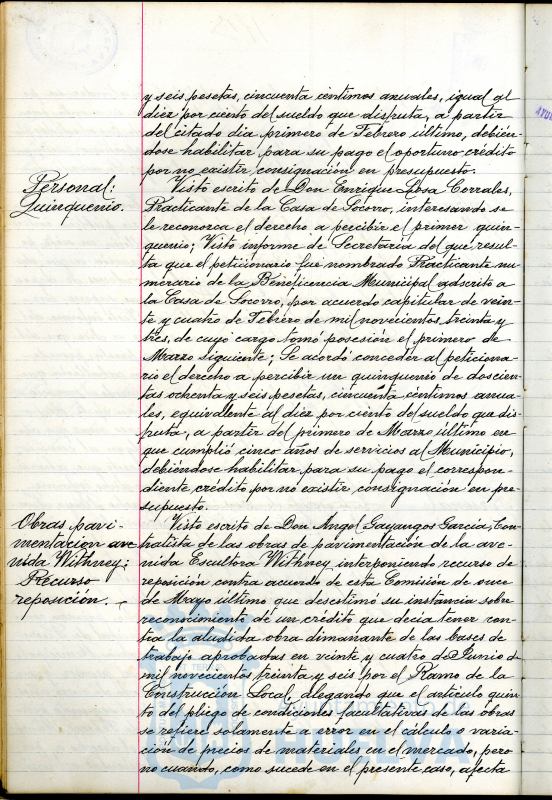 y seis pesetas, cincuenta centimos anuales, igual al
diez por ciento del sueldo que disfruta, a partir
del citado dia primero de Febrero último, debién-
dose habilitar para su pago el oportuno crédito
por no existir consignación en presupuesto.
Personal:
Quinquenio.
Visto escrito de Don Enrique Sosa Corrales,
Practicante de la Casa de Socorro, interesando se
le reconozca el derecho a percibir el primer quin-
quenio; Visto informe de Secretaria del que resul-
ta que el peticionario fué nombrado Practicante nu-
merario de la Beneficencia Municipal adscrito a
la Casa de Socorro, por acuerdo capitular de vein-
te y cuatro de Febrero de mil novecientos treinta y
tres, de cuyo cargo tomó posesión el primero de
Marzo siguiente; Se acordó conceder al peticiona-
rio el derecho a percibir un quinquenio de doscien-
tas ochenta y seis pesetas, cincuenta centimos anua-
les, equivalente al diez por ciento del sueldo que dis-
fruta, a partir del primero de Marzo último en
que cumplió cinco años de servicios al Municipio,
debiéndose habilitar para su pago el correspon-
diente crédito por no existir consignación en pre-
supuesto.
Obras pavi-
mentacion ave-
nida Withney;
Recurso
reposición.
Visto escrito de Don Angel Gayangos Garcia, Con-
tratista de las obras de pavimentación de la ave-
nida Escultora Withney interponiendo recurso de
reposición contra acuerdo de esta Comisión de once
de Mayo último que desestimó su instancia sobre
reconocimiento de un crédito que decia tener con-
tra la aludida obra dimanante de las bases de
trabajo aprobadas en veinte y cuatro de Junio de
mil novecientos treinta y seis por el Ramo de la
Construcción Local, alegando que el articulo quin-
to del pliego de condiciones facultativas de las obras
se refiere solamente a error en el cálculo o varia-
ción de precios de materiales en el mercado, pero
no cuando, como sucede en el presente caso, afecta
Ayuntamiento de
HUELVA